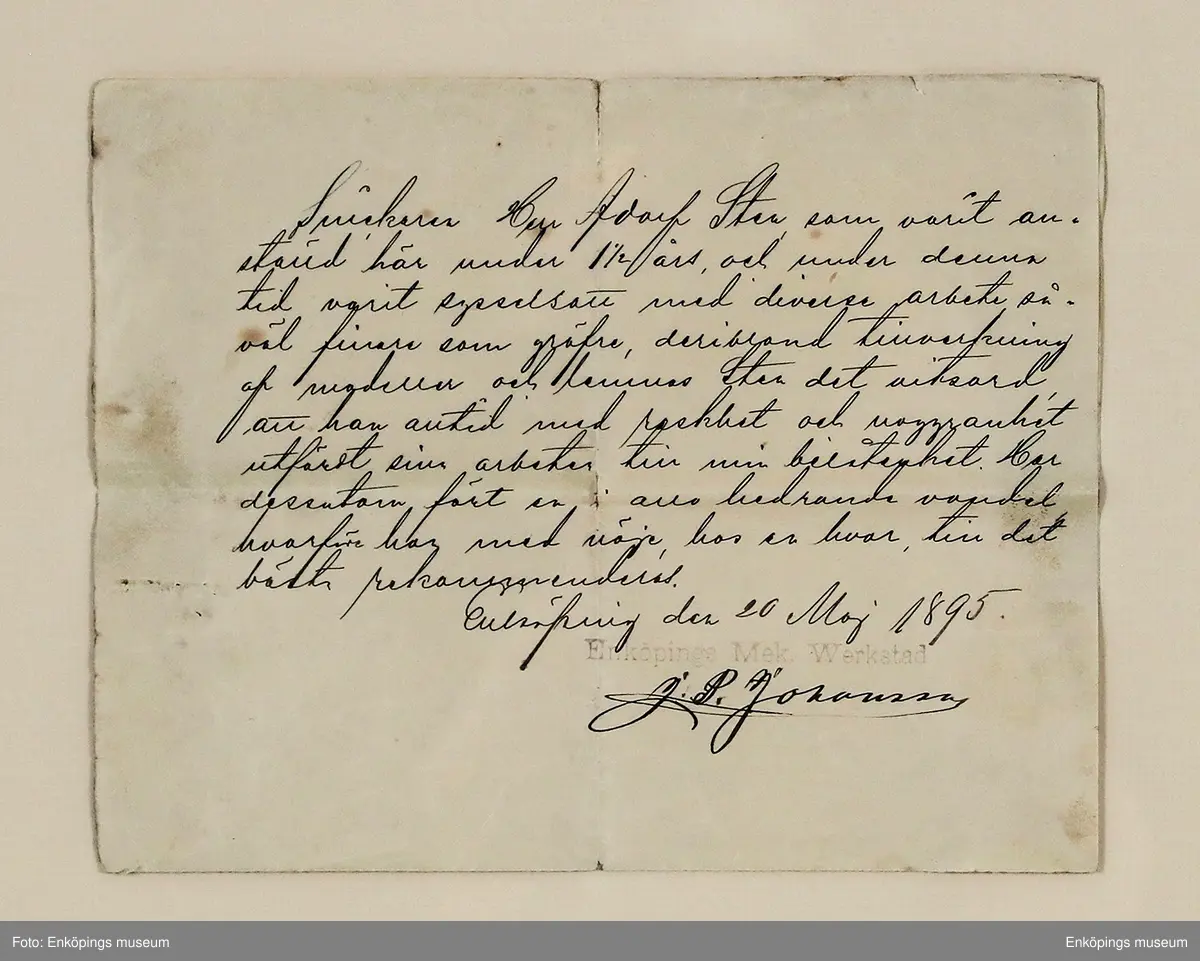 Snickaren Herr Adolf Sten, som varit an-
ställd här under 1 1/2 års, och under denna
tid varit sysselsatt med diverse arbete så-
väl finare som gröfre, deribland tillverkning
af modeller och lemnas Sten det vitsord,
att han alltid med raskhet och noggranhet
utfördt sina arbeten till min belåtenhet. Har
dessutom fört en i allo hedrande vandel
hvarföre han med nöje, hos en hvar, till det
bästa rekommenderas.
Enköping den 20 Maj 1895.
Enköpings Mek. Werkstad
J. P. Johansson
Foto: Enköpings museum
Enköpings museum